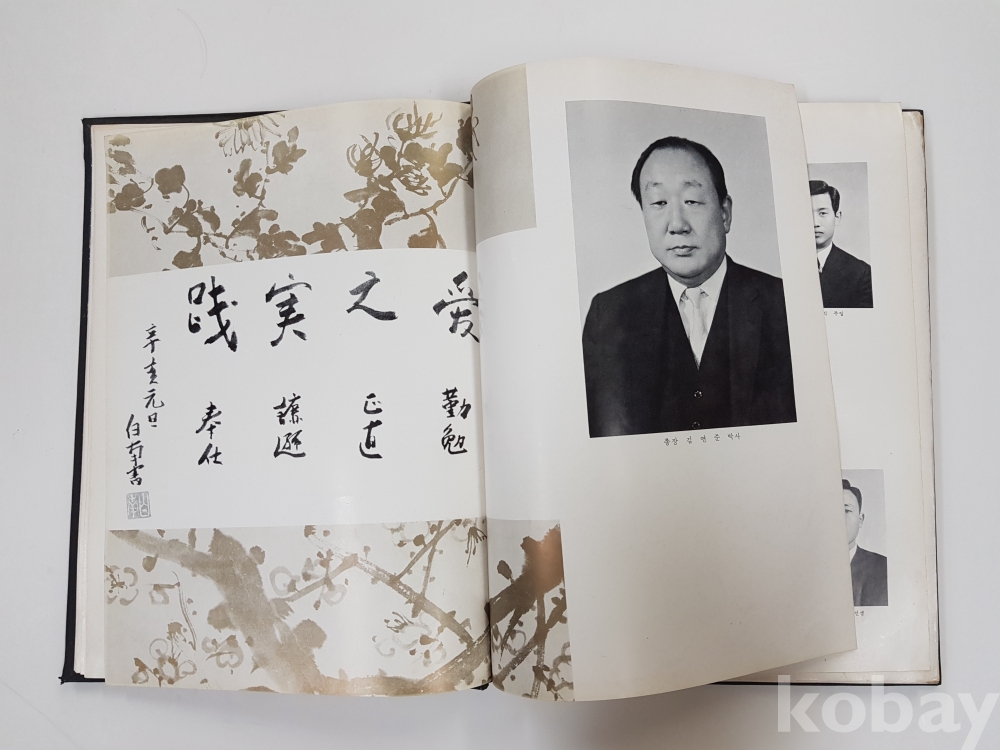 愛之実踐
勤勉
正直
謙遜
奉仕
辛亥元旦
白南書
총장 김 연 준 박사
kobay